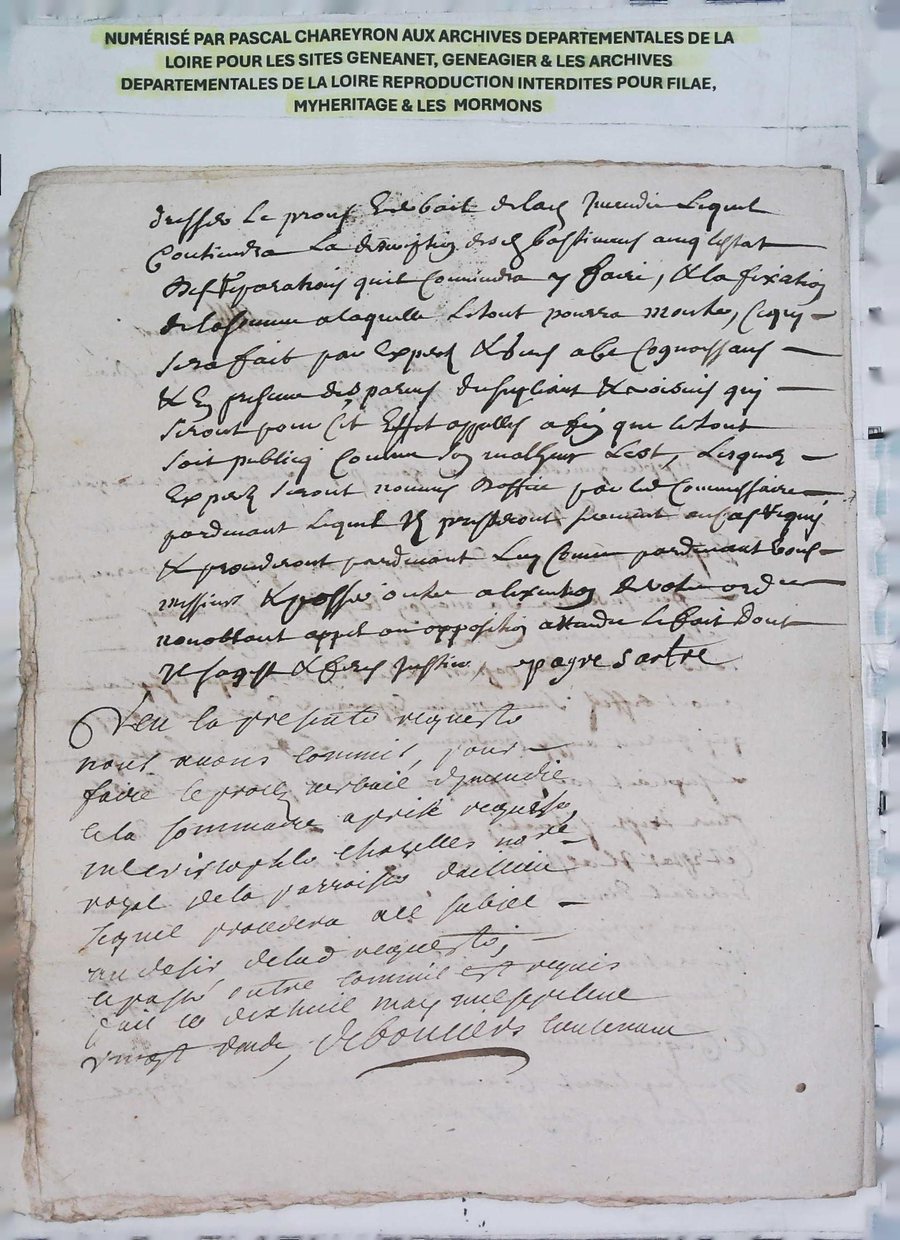 NUMÉRISÉ PAR PASCAL CHAREYRON AUX ARCHIVES DEPARTEMENTALES DE LA
LOIRE POUR LES SITES GENEANET, GENEAGIER & LES ARCHIVES
DEPARTEMENTALES DE LA LOIRE REPRODUCTION INTERDITES POUR FILAE,
MYHERITAGE & LES MORMONS
dresser le proces verbail de lad incendie lequel
contiendra la description desd bastimens avec lestat
des reparations quil conviendra y faire, & la fixation
de la somme a laquelle le tout pourra monter, ce qui
sera fait par experts & gens a ce cognoissans
& en presence des parens du supliant & voisins qui
seront pour cet effet appelles afin que le tout
soit publicq comme son malheur lest, lesquels
experts seront nommes doffice par led commissaire
pardevant lequel ils presteront serment au cas requis
& procederont pardevant luy comme pardevant vous
messieurs & passé outre a lexecution de votre ordre
nonobstant appel ou opposition attendu le fait dont
il sagist & feres justice, pagre sartre
Veu la presente requeste
nous avons commis pour
faire le proces verbail dincendie
et la sommaire aprise requise,
me cristophle chazelles nore
royal de la parroisse
lequel procedera
au desir de lad requeste,
et passé outre comme est requis
fait ce dixhuit may mil sept cent
vingt deux, deboulieu lieutenant